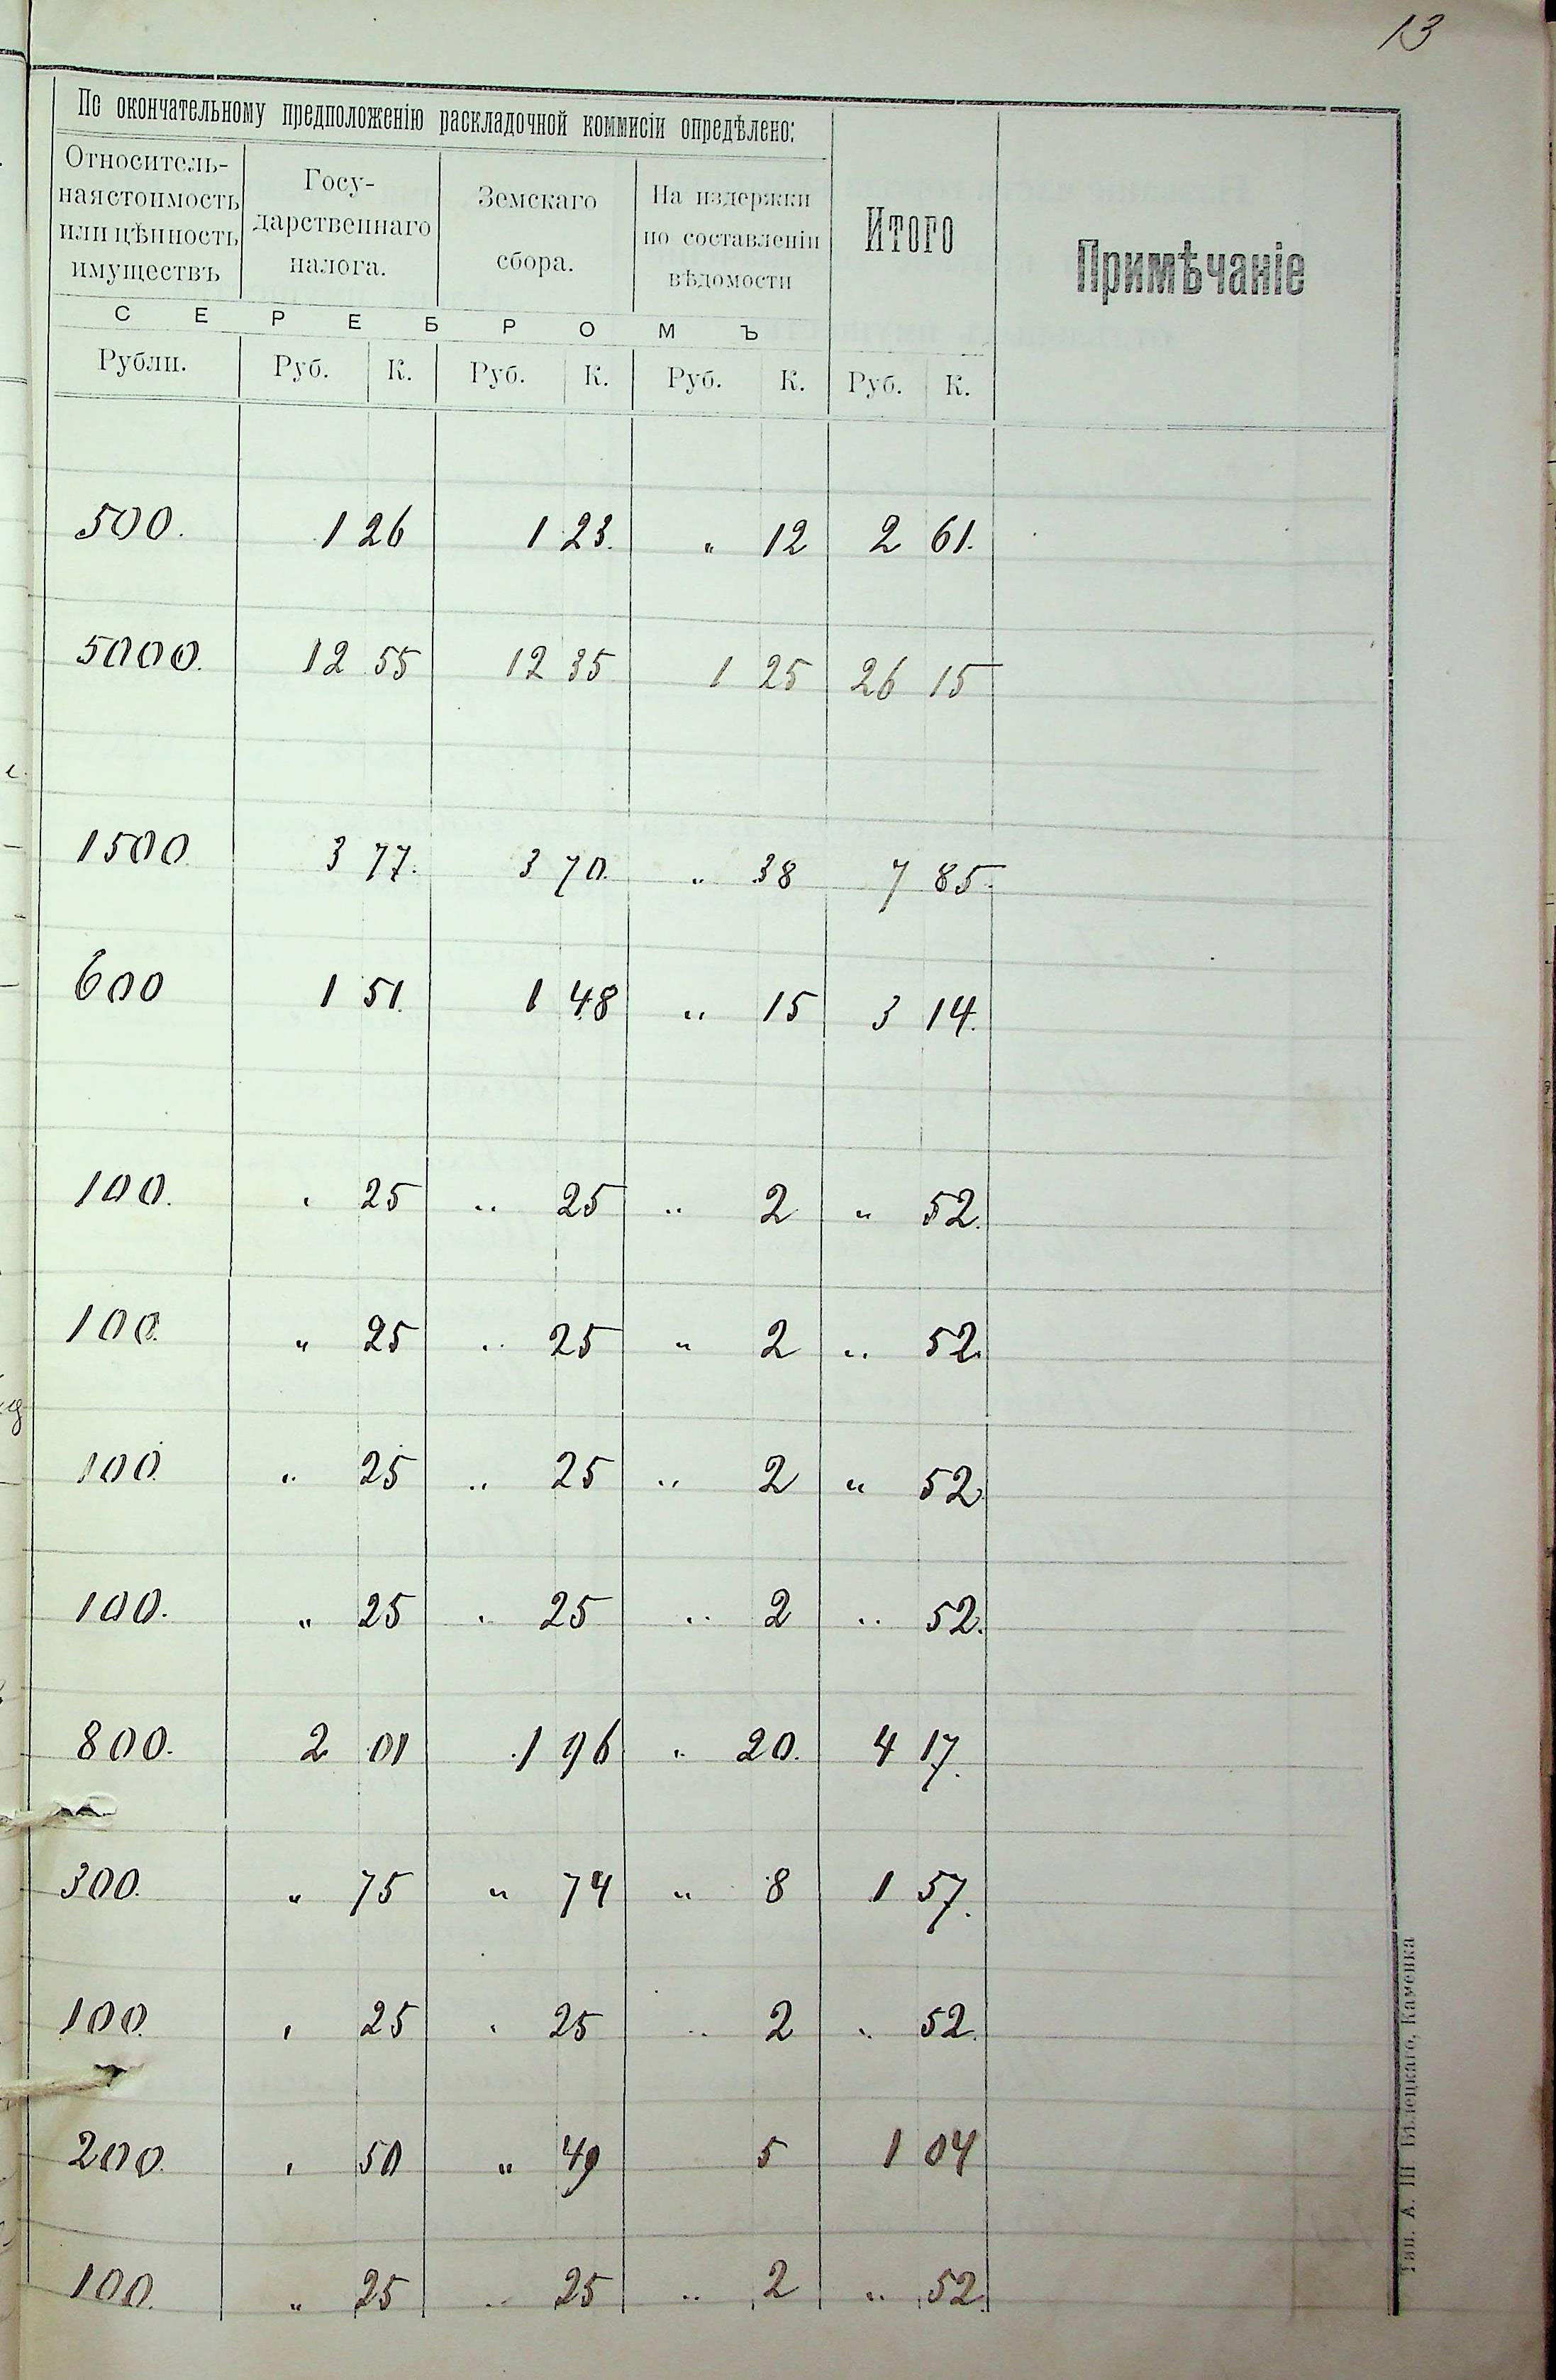 13
По окончательному предположенію раскладочной коммисіи опредѣлено:
Относитель-
ная стоимость
или цѣнность
имуществъ
Госу-
дарственнаго
налога.
Земскаго
сбора.
На издержки
по составленіи
вѣдомости
Итого
Примѣчаніе
СЕРЕБРОМЪ
Рубли. Руб. К. Руб. К. Руб. К. Руб. К.
500. 1 26 1 23. " 12 2 61.
5000. 12 55 12 35 1 25 26 15
1500 3 77. 3 70. " 38 7 85.
600 1 51. 1 48 " 15 3 14.
100. " 25 " 25 " 2 " 52.
100. " 25 " 25 " 2 " 52.
100. " 25 " 25 " 2 " 52
100. " 25 " 25 " 2 " 52.
800. 2 01 1 96 " 20. 4 17.
300. " 75 " 74 " 8 1 57.
100. " 25 " 25 " 2 " 52.
200. " 50 " 49 5 1 04
100. " 25 " 25 " 2 " 52.
Тип. А. Ш Бѣлецкаго, Каменка